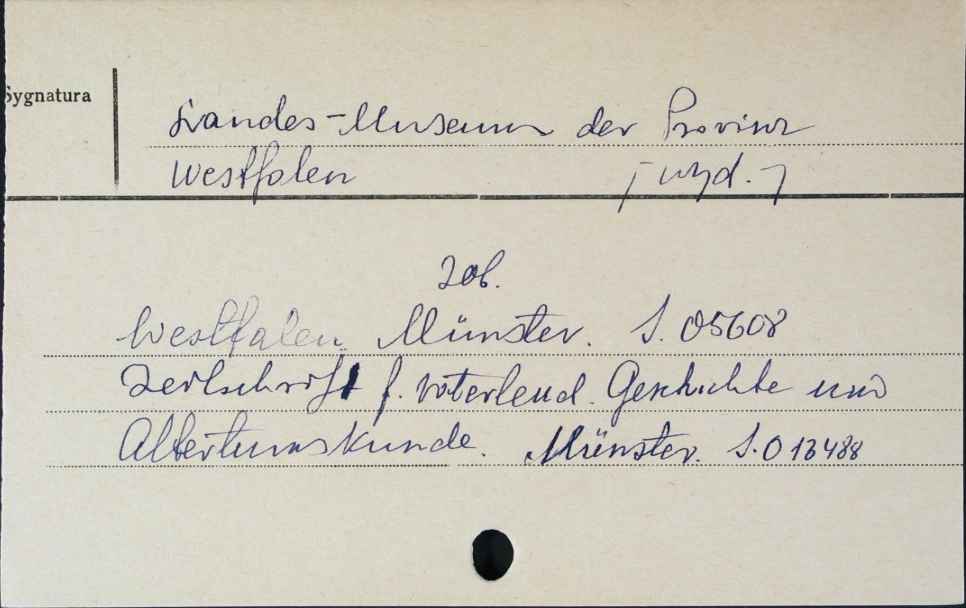 Sygnatura
Landes-Museum der Provinz
Westfalen [wyd.]
Zob.
Westfalen. Münster. S. 05608
Zeitschrift f. vaterländ. Geschichte und
Altertumskunde. Münster. S.O 13488